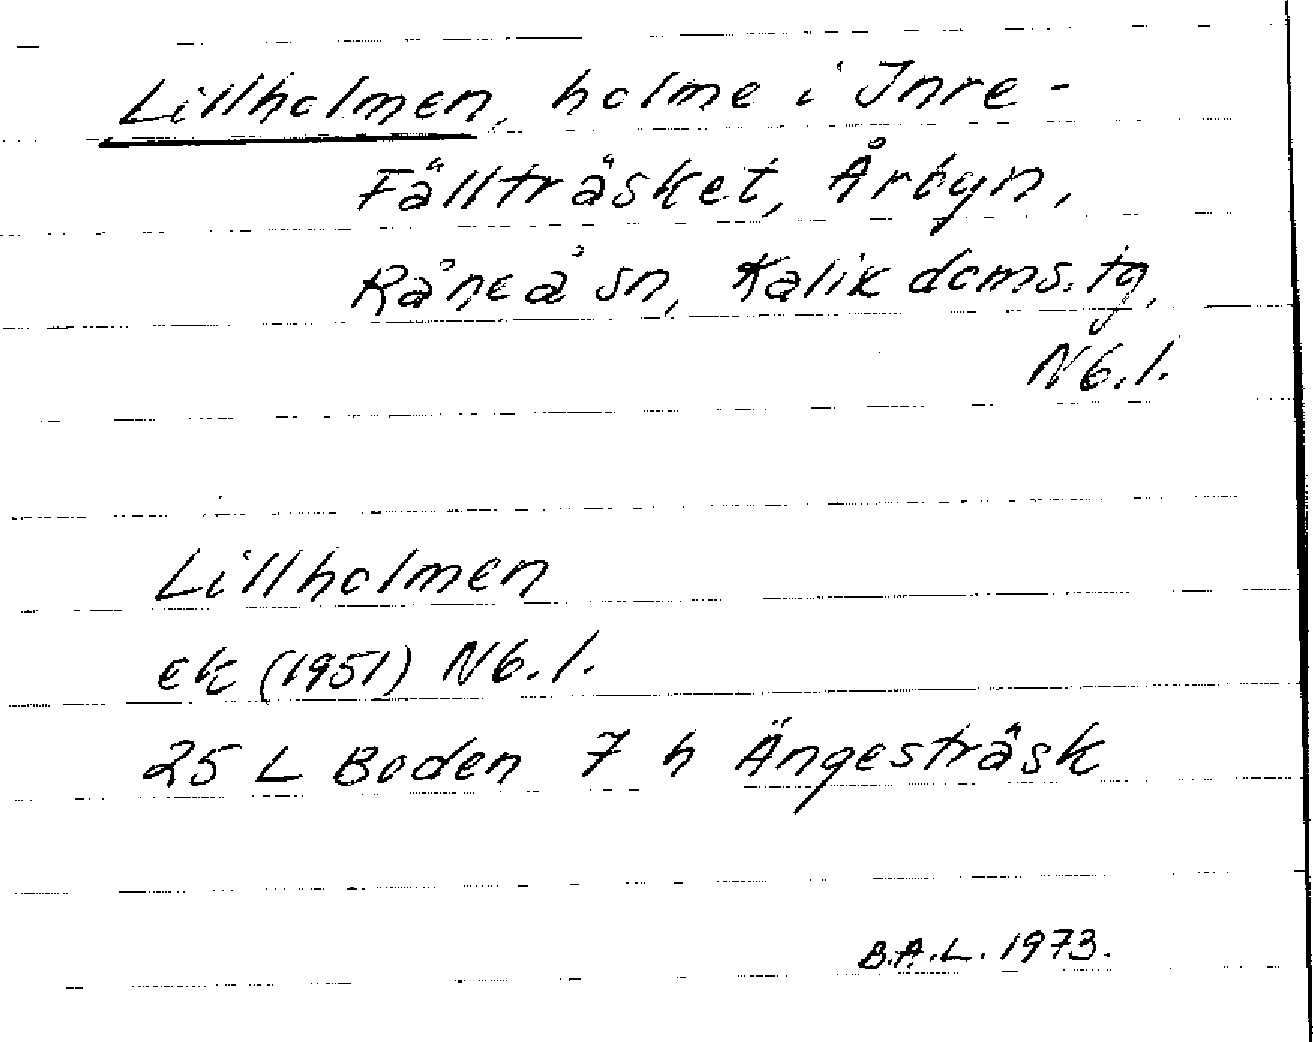 Lillholmen, holme i Inre-
Fällträsket, Årbyn,
Råneå sn, Kalix doms. tg,
Nb. l.
Lillholmen
ek (1951) Nb. l.
25 L Boden 7 h Ängesträsk
B.A.L. 1973.